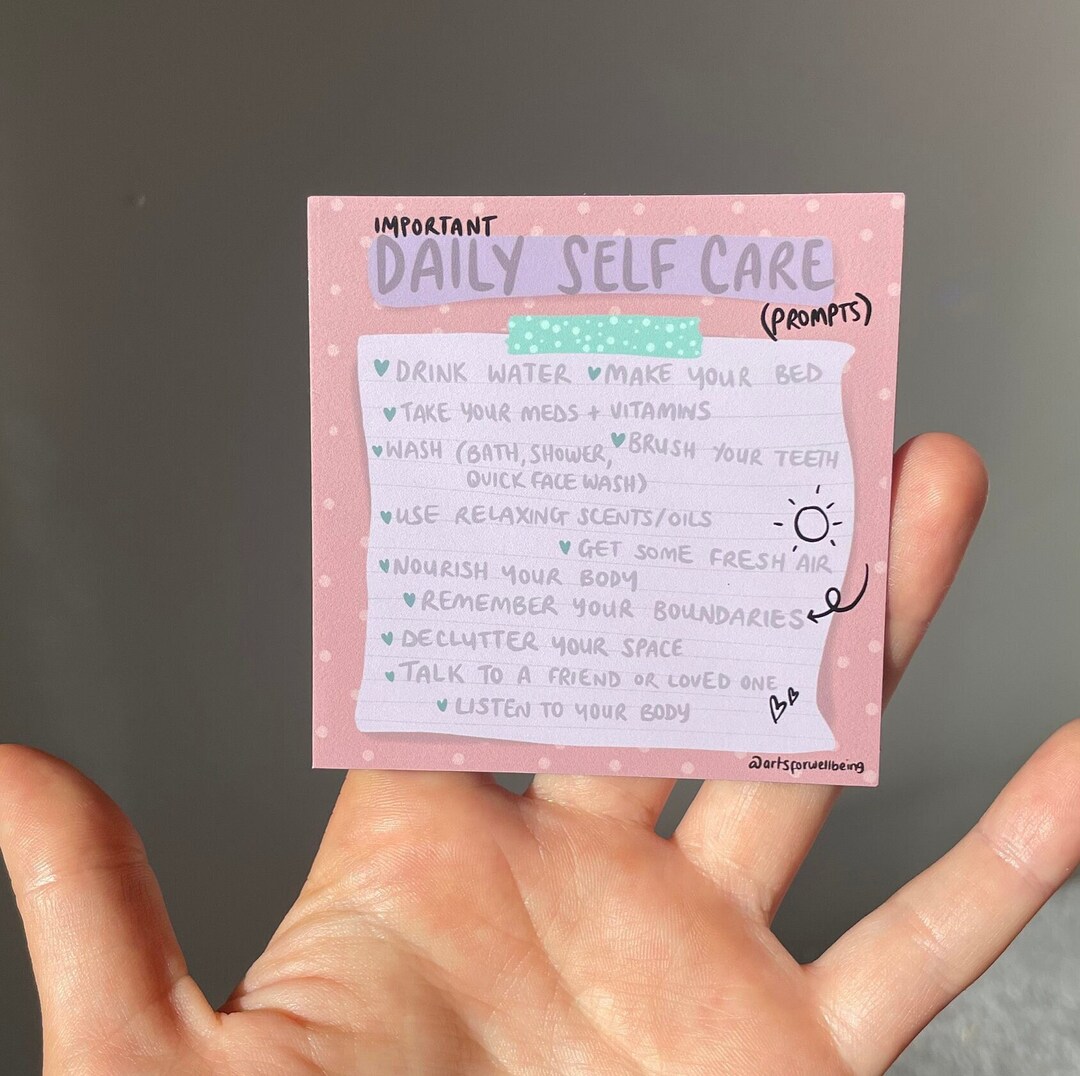 IMPORTANT
DAILY SELF CARE
(PROMPTS)
♥ DRINK WATER ♥ MAKE YOUR BED
♥ TAKE YOUR MEDS + VITAMINS
♥ WASH (BATH, SHOWER, QUICK FACE WASH)
♥ BRUSH YOUR TEETH
♥ USE RELAXING SCENTS/OILS
♥ GET SOME FRESH AIR
♥ NOURISH YOUR BODY
♥ REMEMBER YOUR BOUNDARIES
♥ DECLUTTER YOUR SPACE
♥ TALK TO A FRIEND OR LOVED ONE
♥ LISTEN TO YOUR BODY
@artsforwellbeing